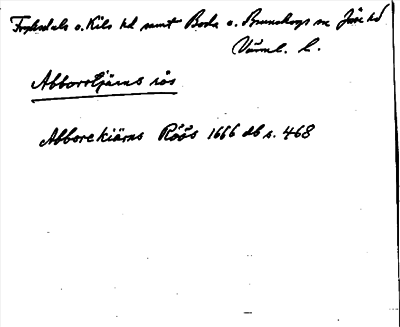 Fryksdals o. Kils hd samt Boda o. Brunskogs sn Jöse hd
Värml. l.
Abborrtjärns rös
Abborekiärns Röös 1666 db s. 468